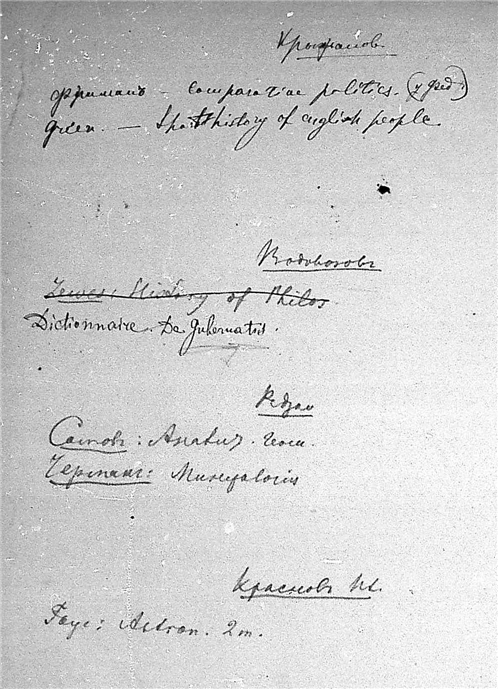 Крыжанов.
Фриманъ – comparative politics. (у Фед.)
Green. – Short history of english people.
Водовозовъ
Lewes: History of Philos
Dictionnaire. De Gubernatis.
Сомовъ: Аналит. геом.
Чермакъ: Минералогія
Красновъ Ил.
Faye: Astron. 2 т.